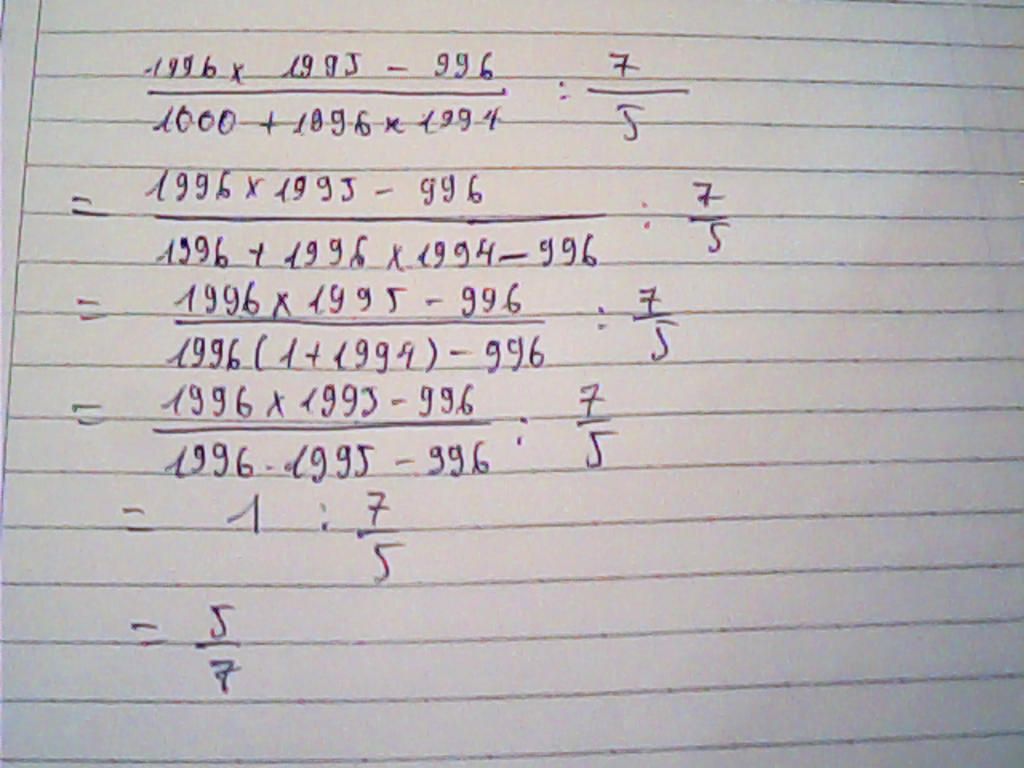 1996 x 1995 - 996 / 1000 + 1996 x 1994 : 7/5
= 1996 x 1995 - 996 / 1996 + 1996 x 1994 - 996 : 7/5
= 1996 x 1995 - 996 / 1996 (1 + 1994) - 996 : 7/5
= 1996 x 1995 - 996 / 1996 . 1995 - 996 : 7/5
= 1 : 7/5
= 5/7